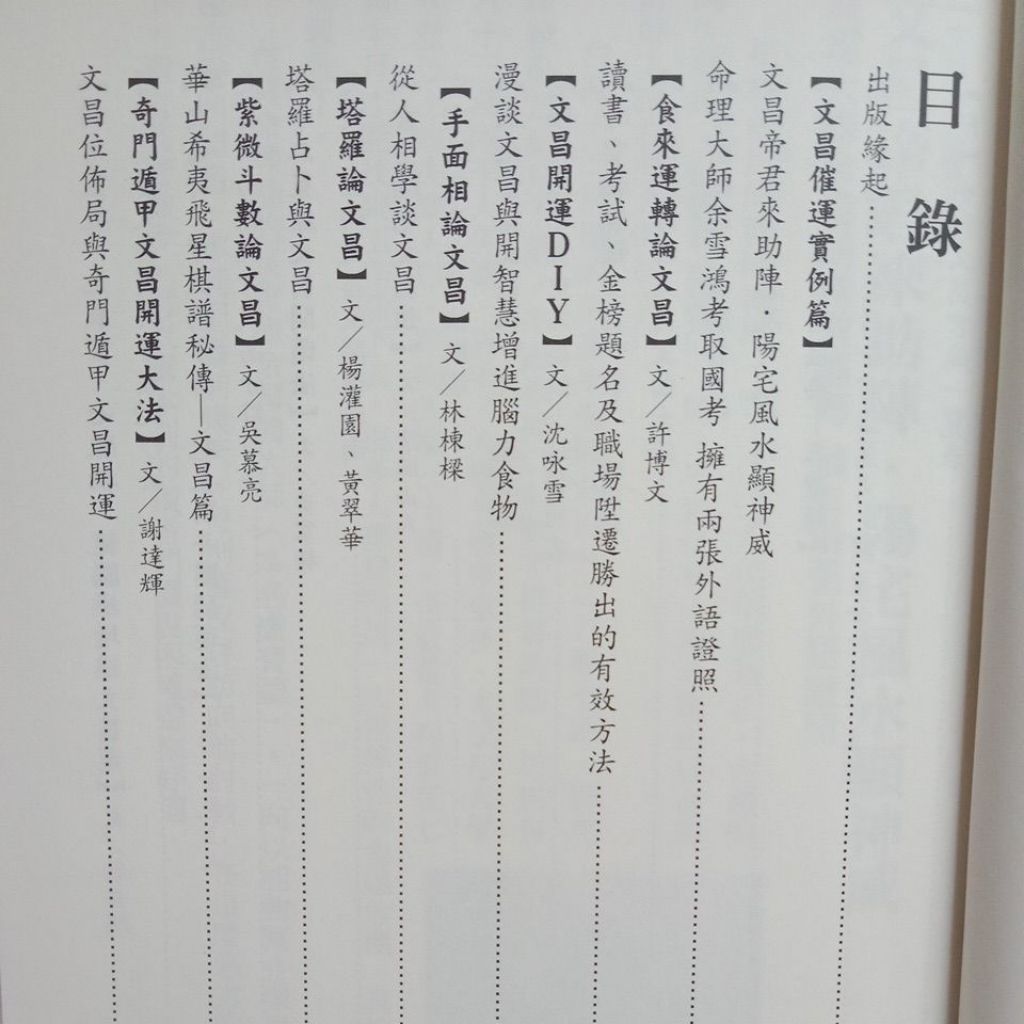 目錄
出版緣起
【文昌催運實例篇】
文昌帝君來助陣．陽宅風水顯神威
命理大師余雪鴻考取國考 擁有兩張外語證照
【食來運轉論文昌】 文／許博文
讀書、考試、金榜題名及職場陞遷勝出的有效方法
【文昌開運DIY】 文／沈咏雪
漫談文昌與開智慧增進腦力食物
【手面相論文昌】 文／林棟樑
從人相學談文昌
【塔羅論文昌】 文／楊灌園、黃翠華
塔羅占卜與文昌
【紫微斗數論文昌】 文／吳慕亮
華山希夷飛星棋譜秘傳—文昌篇
【奇門遁甲文昌開運大法】 文／謝達輝
文昌位佈局與奇門遁甲文昌開運